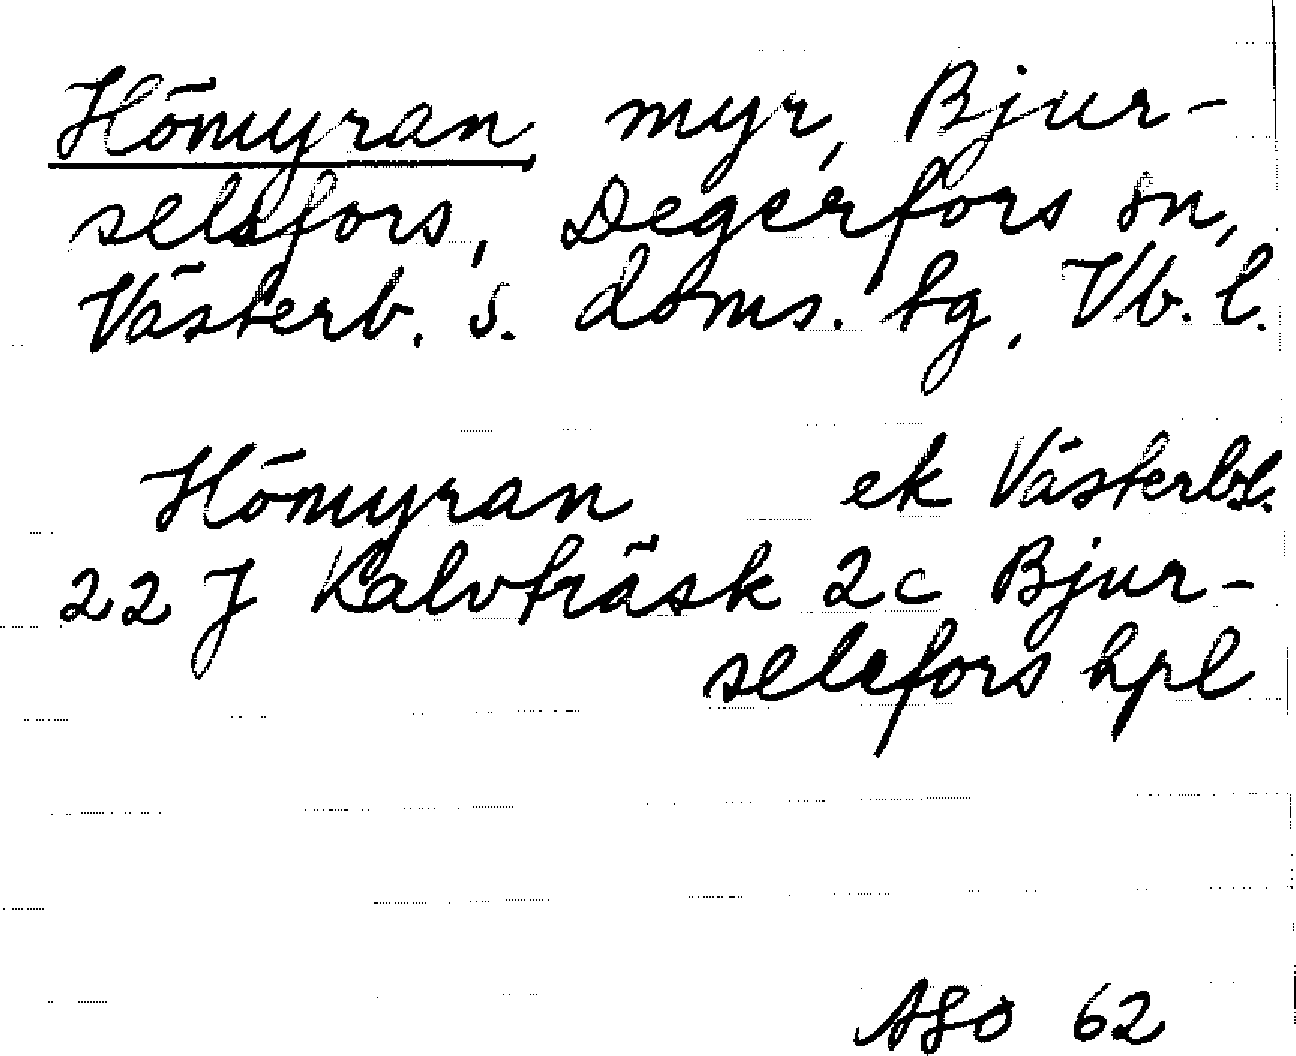 Hömyran myr, Bjur-
selsfors, Degerfors sn,
Västerb. s. doms. tg, Vb. l.
Hömyran ek Västerb.
22 J Kalvträsk 2c Bjur-
selsfors hpl
62